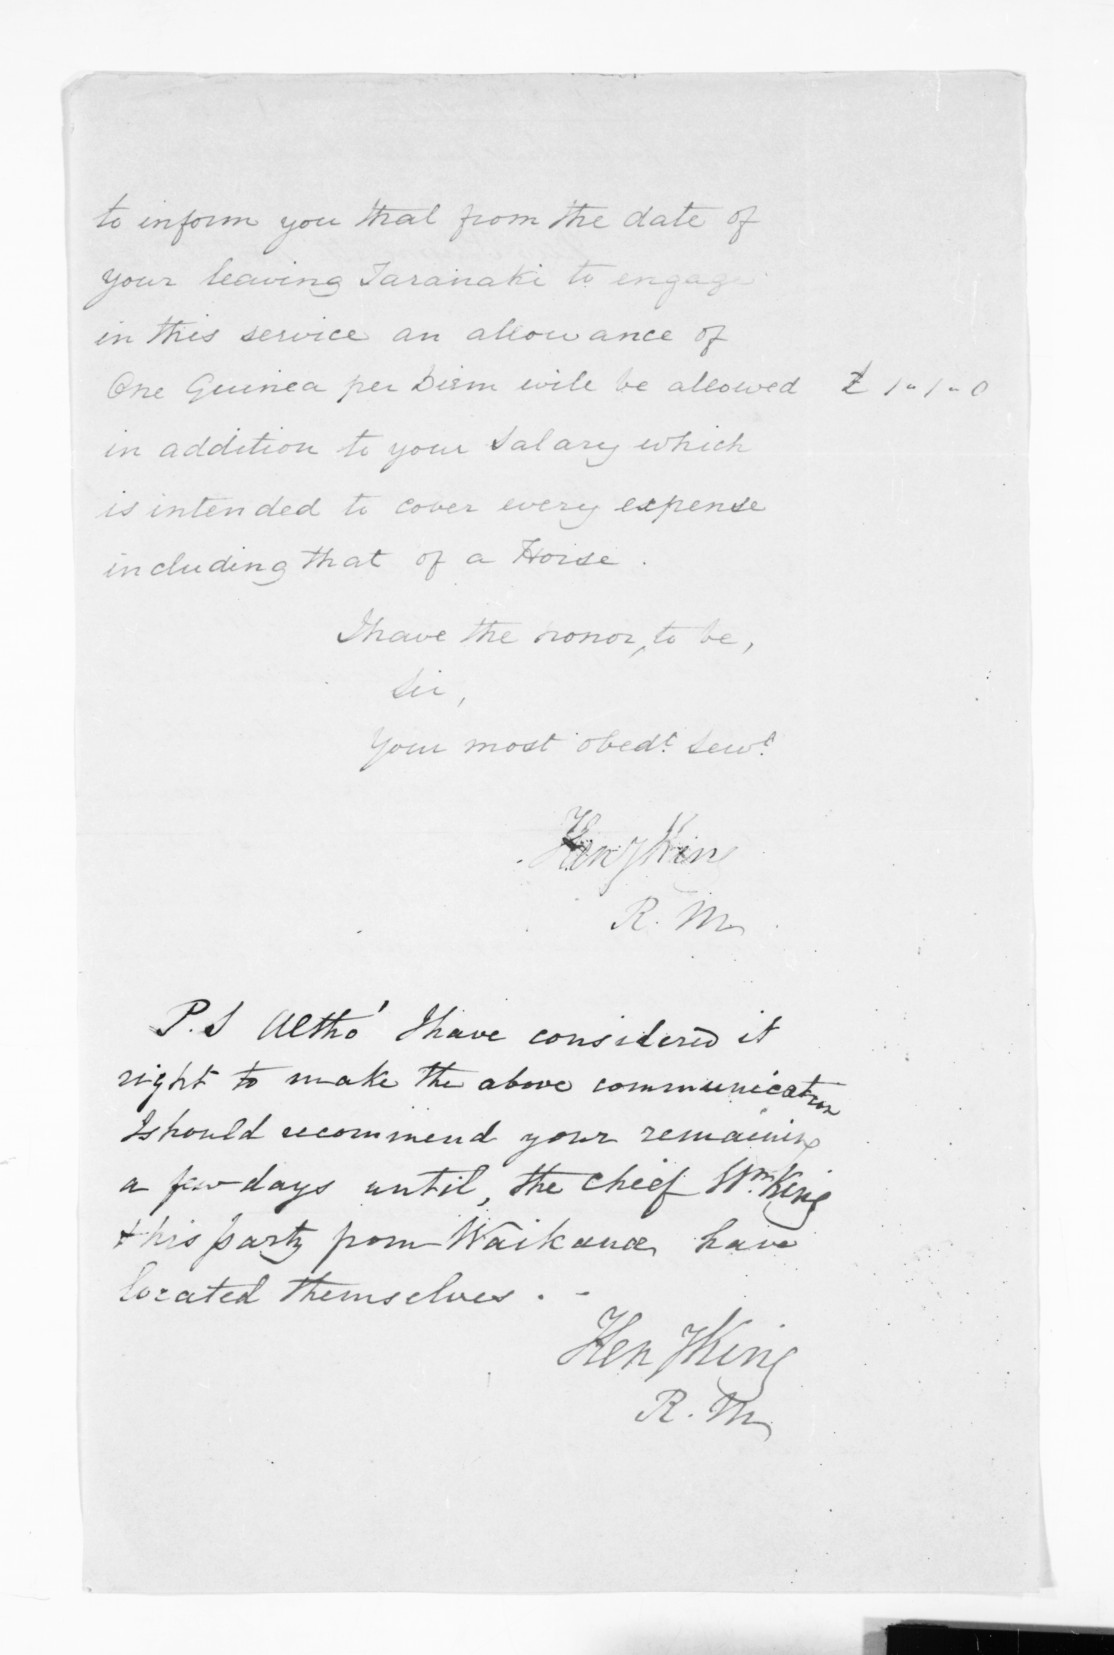 to inform you that from the date of
your leaving Taranaki to engage
in this service an allowance of
One Guinea per Diem will be allowed £1-1-0
in addition to your Salary which
is intended to cover every expense
including that of a Horse.
I have the honor, to be,
Sir,
Your most obedt. Servt.
Heny King
R. M.
P.S Altho' I have considered it
right to make the above communication
I should recommend your remaining
a few days until, the chief Wm. King
& his party from Waikanae have
located themselves. -
Heny King
R. M.